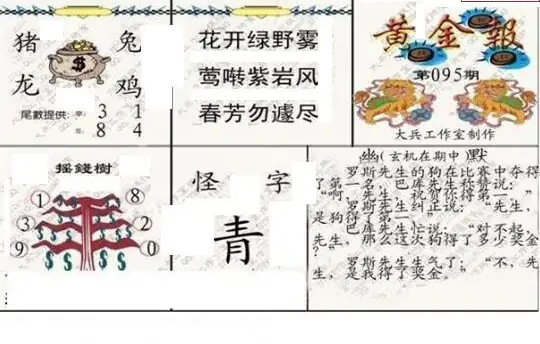 猪 兔
龙 鸡
尾數提供: 單: 3 1
8 4
花开绿野雾
莺啭紫岩风
春芳勿遽尽
黄金報
第095期
大兵工作室制作
摇錢樹
1 8
3 2
9 0
怪 字
青
幽(玄机在期中)默
罗斯先生的狗在比赛中夺得
了第一名，巴库先生称赞说：
“啊，先生，祝贺你得第一。”
罗斯先生纠正说：“先生，
是狗得了第一。”
巴库先生忙说：“对不起，
先生，那么这次狗得了多少奖金
？”
罗斯先生生气了：“不，先
生，是我得了奖金。”